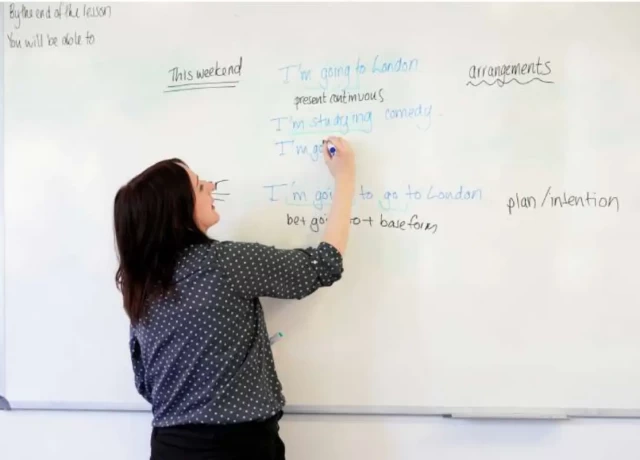 By the end of the lesson
You will be able to
This weekend
I'm going to London
arrangements
present continuous
I'm studying comedy.
I'm go
I'm goi to go to London
plan/intention
be + goi to + base form